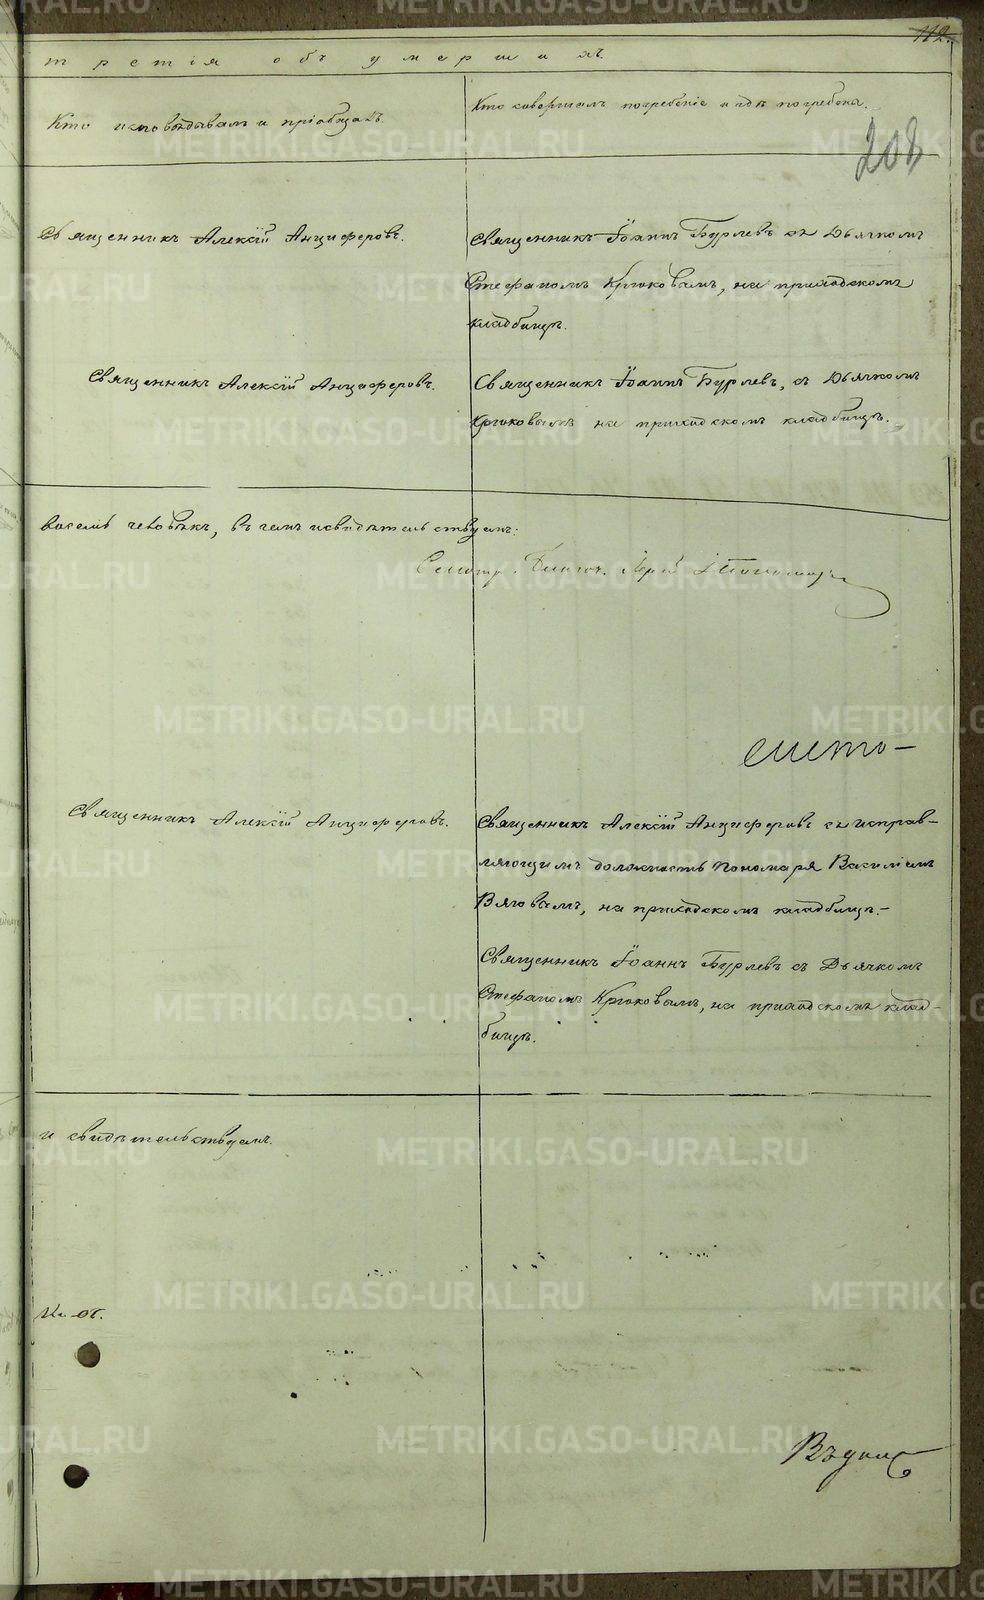 112.
третія объ умершихъ.
Кто исповѣдывалъ и пріобщалъ.
Кто совершалъ погребеніе и гдѣ погребены.
208
Священникъ Алексій Анциферовъ.
Священникъ Іоаннъ Бурлевъ съ Дьячкомъ
Стефаномъ Крюковымъ, на приходскомъ
кладбищѣ.
Священникъ Алексій Анциферовъ.
Священникъ Іоаннъ Бурлевъ, съ Дьячкомъ
Крюковымъ на приходскомъ кладбищѣ.
восемь человѣкъ, въ чемъ и свидѣтельствуемъ:
Священникъ Алексій Анциферовъ.
Священникъ Алексій Анциферовъ съ исправ-
ляющимъ должность Пономаря Василіемъ
Вяговымъ, на приходскомъ кладбищѣ.-
Священникъ Іоаннъ Бурлевъ съ Дьячкомъ
Стефаномъ Крюковымъ, на приходскомъ клад-
бищѣ.
и свидѣтельствуемъ.
METRIKI.GASO-URAL.RU